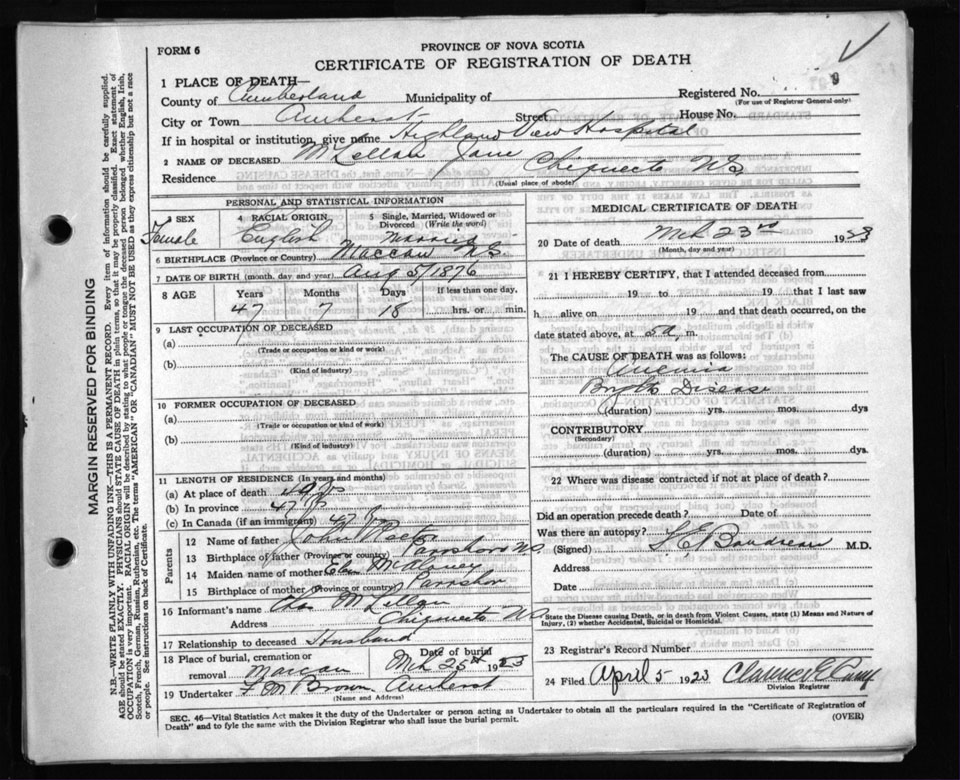 FORM 6
PROVINCE OF NOVA SCOTIA
CERTIFICATE OF REGISTRATION OF DEATH
1 PLACE OF DEATH—
Registered No.
(For use of Registrar General only)
County of Cumberland Municipality of
City or Town Amherst Street House No.
If in hospital or institution, give name Highland View Hospital
2 NAME OF DECEASED McLellan Jane
Residence Chignecto N.S.
(Usual place of abode)
PERSONAL AND STATISTICAL INFORMATION
3 SEX
Female
4 RACIAL ORIGIN
English
5 Single, Married, Widowed or Divorced (Write the word)
Married
6 BIRTHPLACE (Province or Country) Maccan N.S.
7 DATE OF BIRTH (month, day and year) Aug 5/1876
8 AGE Years Months Days If less than one day,
47 7 18 hrs. or min.
9 LAST OCCUPATION OF DECEASED
(a)
(Trade or occupation or kind or work)
(b)
(Kind of industry)
10 FORMER OCCUPATION OF DECEASED
(a)
(Trade or occupation or kind of work)
(b)
(Kind of industry)
11 LENGTH OF RESIDENCE (In years and months)
(a) At place of death
(b) In province 47
(c) In Canada (if an immigrant) 47
Parents
12 Name of father John
13 Birthplace of father (Province or country) Parrsboro N.S.
14 Maiden name of mother
15 Birthplace of mother (Province or country) Parrsboro
16 Informant's name McLellan
Address Chignecto N.S.
17 Relationship to deceased Husband
18 Place of burial, cremation or removal Maccan
Date of burial
Mch 25th 1923
19 Undertaker F M Brown Amherst
(Name and Address)
MEDICAL CERTIFICATE OF DEATH
20 Date of death Mch 23rd 1923
(Month, day and year)
21 I HEREBY CERTIFY, that I attended deceased from
19 to 19 that I last saw
h alive on 19 and that death occurred, on the
date stated above, at 5 a, m.
The CAUSE OF DEATH was as follows:
Anemia
Brights Disease
(duration) yrs. mos. dys
CONTRIBUTORY
(Secondary)
(duration) yrs. mos. dys.
22 Where was disease contracted if not at place of death?
Did an operation precede death? Date of
Was there an autopsy?
(Signed) Boudreau M.D.
Address
Date
State the Disease causing Death, or in death from Violent Causes, state (1) Means and Nature of
Injury, (2) whether Accidental, Suicidal or Homicidal.
23 Registrar's Record Number
24 Filed April 5 1923 Clarence E
Division Registrar
SEC. 46—Vital Statistics Act makes it the duty of the Undertaker or person acting as Undertaker to obtain all the particulars required in the "Certificate of Registration of
Death" and to fyle the same with the Division Registrar who shall issue the burial permit.
(OVER)
MARGIN RESERVED FOR BINDING
N.B.—WRITE PLAINLY WITH UNFADING INK—THIS IS A PERMANENT RECORD. Every item of information should be carefully supplied.
AGE should be stated EXACTLY. PHYSICIANS should STATE CAUSE OF DEATH in plain terms, so that it may be properly classified. Exact statement of
OCCUPATION is very important. RACIAL ORIGIN will be described by stating to what people or tongue the deceased person belonged whether English, Irish,
Scotch, French, German, Russian, Ruthenian, etc. The terms "AMERICAN" OR "CANADIAN" MUST NOT BE USED as they express citizenship but not a race
or people. See instructions on back of Certificate.